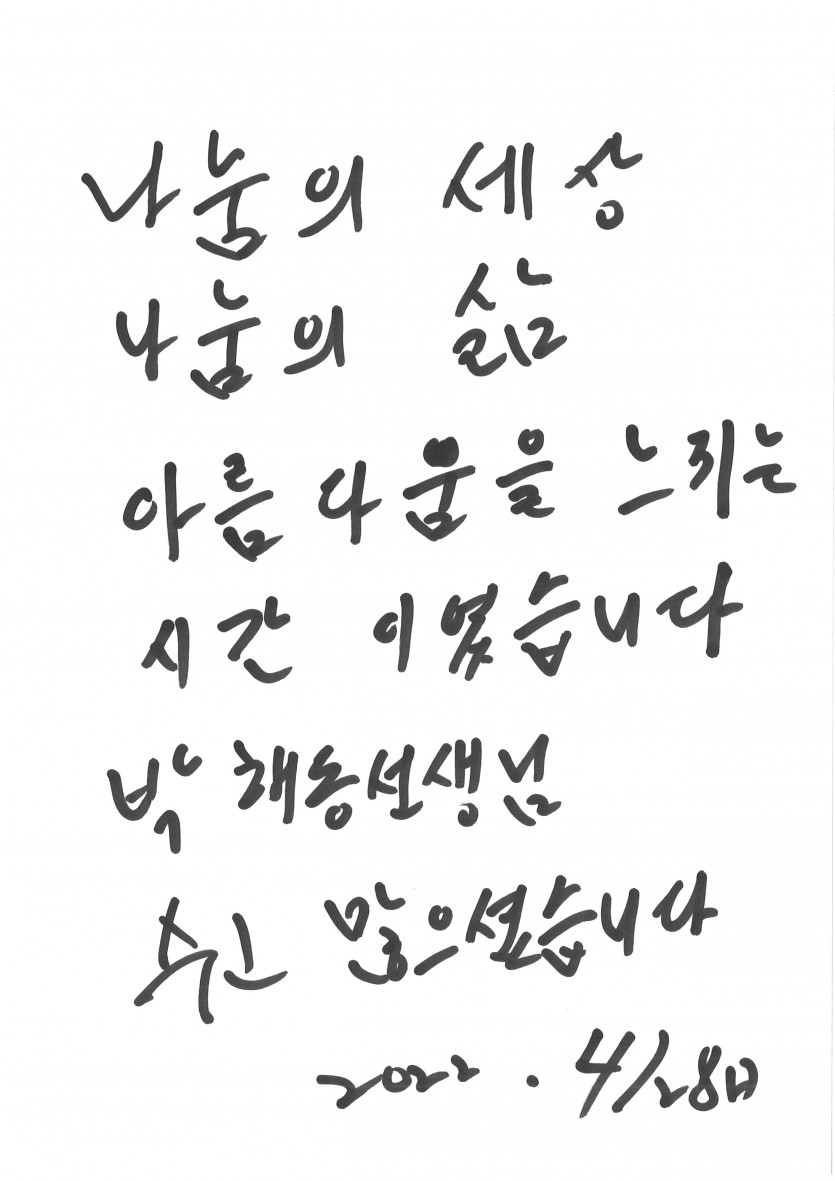 나눔의 세상
나눔의 삶
아름다움을 느끼는
시간 이였습니다
박재동선생님
수고 많으셨습니다
2022. 4/28日